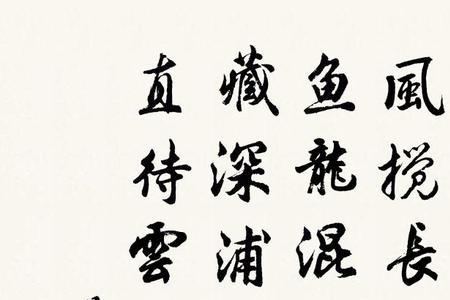 風搅長
鱼龍混
藏深浦
直待雲